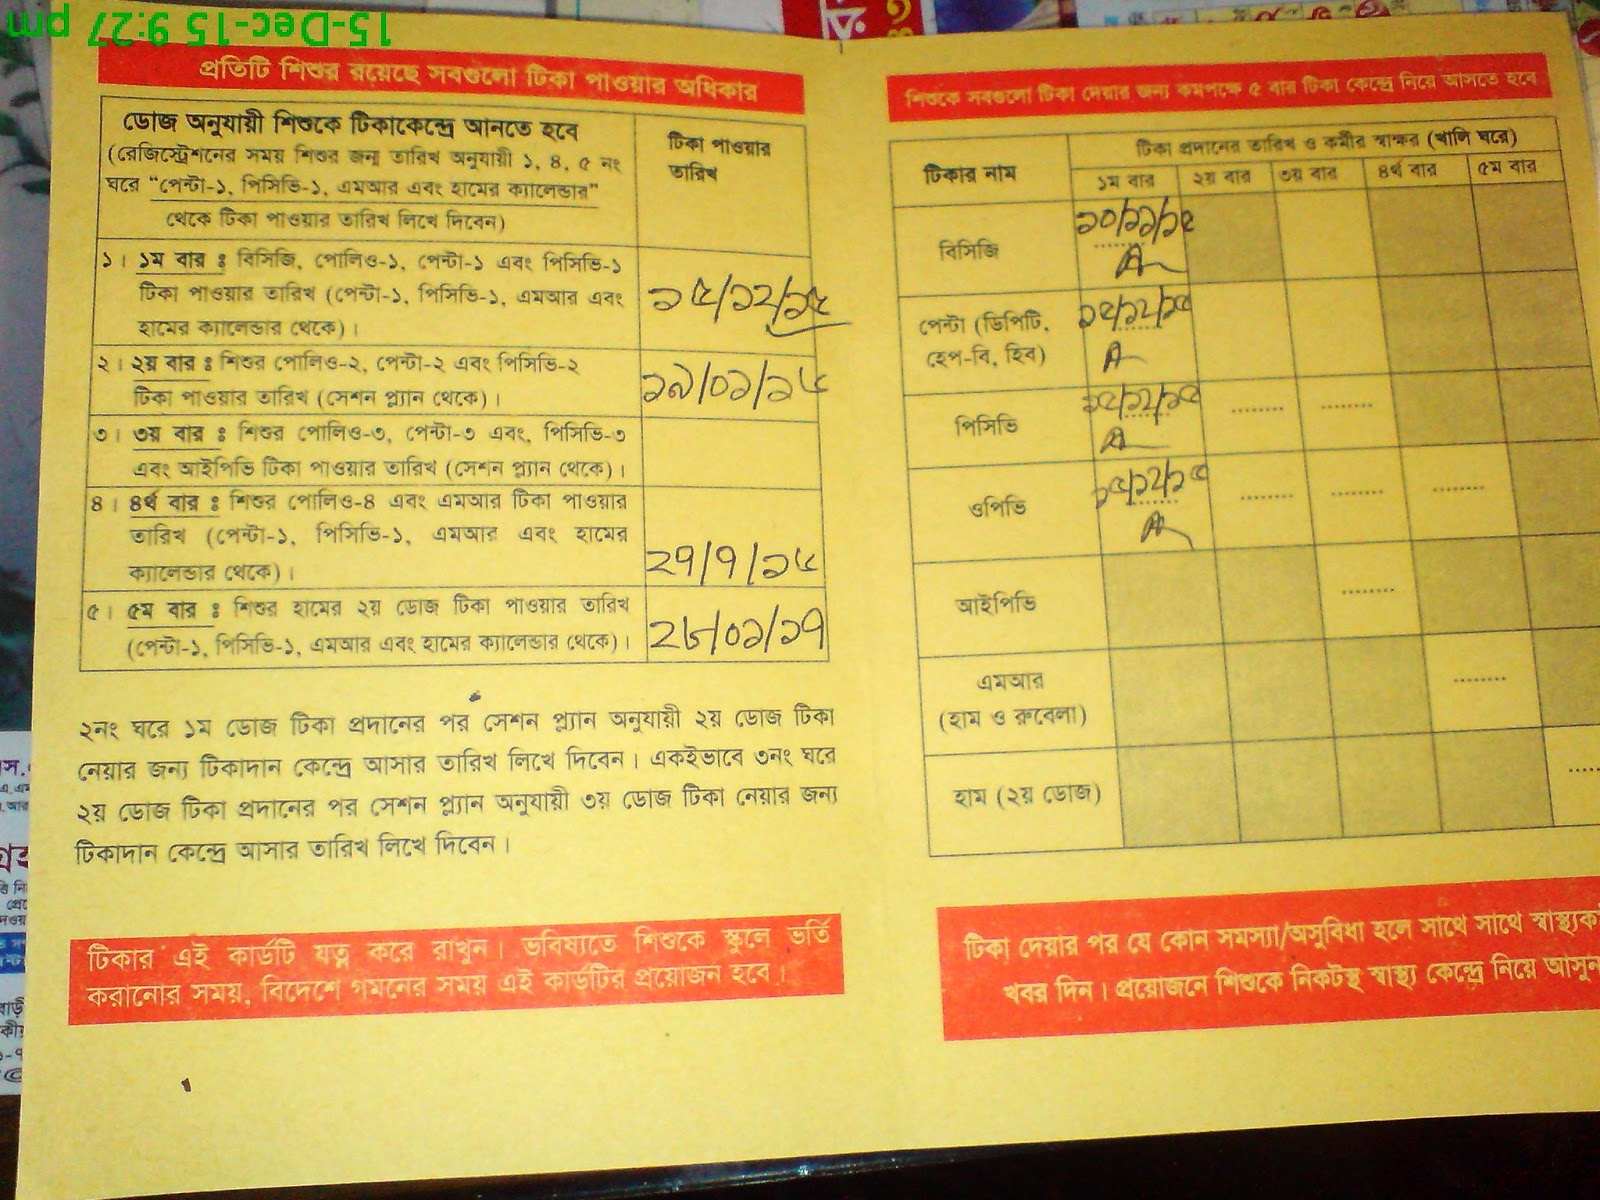 15-Dec-15 9:27 pm
প্রতিটি শিশুর রয়েছে সবগুলো টিকা পাওয়ার অধিকার
ডোজ অনুযায়ী শিশুকে টিকাকেন্দ্রে আনতে হবে
(রেজিস্ট্রেশনের সময় শিশুর জন্ম তারিখ অনুযায়ী ১, ৪, ৫ নং
ঘরে "পেন্টা-১, পিসিভি-১, এমআর এবং হামের ক্যালেন্ডার"
থেকে টিকা পাওয়ার তারিখ লিখে দিবেন)
টিকা পাওয়ার
তারিখ
১। ১ম বার ঃ বিসিজি, পোলিও-১, পেন্টা-১ এবং পিসিভি-১
টিকা পাওয়ার তারিখ (পেন্টা-১, পিসিভি-১, এমআর এবং
হামের ক্যালেন্ডার থেকে)।
১৫/১২/১৫
২। ২য় বার ঃ শিশুর পোলিও-২, পেন্টা-২ এবং পিসিভি-২
টিকা পাওয়ার তারিখ (সেশন প্ল্যান থেকে)।
১৯/০১/১৬
৩। ৩য় বার ঃ শিশুর পোলিও-৩, পেন্টা-৩ এবং, পিসিভি-৩
এবং আইপিভি টিকা পাওয়ার তারিখ (সেশন প্ল্যান থেকে)।
৪। ৪র্থ বার ঃ শিশুর পোলিও-৪ এবং এমআর টিকা পাওয়ার
তারিখ (পেন্টা-১, পিসিভি-১, এমআর এবং হামের
ক্যালেন্ডার থেকে)।
২৭/৭/১৬
৫। ৫ম বার ঃ শিশুর হামের ২য় ডোজ টিকা পাওয়ার তারিখ
(পেন্টা-১, পিসিভি-১, এমআর এবং হামের ক্যালেন্ডার থেকে)।
২৮/০১/১৭
২নং ঘরে ১ম ডোজ টিকা প্রদানের পর সেশন প্ল্যান অনুযায়ী ২য় ডোজ টিকা
নেয়ার জন্য টিকাদান কেন্দ্রে আসার তারিখ লিখে দিবেন। একইভাবে ৩নং ঘরে
২য় ডোজ টিকা প্রদানের পর সেশন প্ল্যান অনুযায়ী ৩য় ডোজ টিকা নেয়ার জন্য
টিকাদান কেন্দ্রে আসার তারিখ লিখে দিবেন।
টিকার এই কার্ডটি যত্ন করে রাখুন। ভবিষ্যতে শিশুকে স্কুলে ভর্তি
করানোর সময়, বিদেশে গমনের সময় এই কার্ডটির প্রয়োজন হবে।
শিশুকে সবগুলো টিকা দেয়ার জন্য কমপক্ষে ৫ বার টিকা কেন্দ্রে নিয়ে আসতে হবে
টিকার নাম
টিকা প্রদানের তারিখ ও কর্মীর স্বাক্ষর (খালি ঘরে)
১ম বার ২য় বার ৩য় বার ৪র্থ বার ৫ম বার
বিসিজি
১০/১১/১৫
পেন্টা (ডিপিটি,
হেপ-বি, হিব)
১৫/১২/১৫
পিসিভি
১৫/১২/১৫
ওপিভি
১৫/১২/১৫
আইপিভি
এমআর
(হাম ও রুবেলা)
হাম (২য় ডোজ)
টিকা দেয়ার পর যে কোন সমস্যা/অসুবিধা হলে সাথে সাথে
খবর দিন। প্রয়োজনে শিশুকে নিকটস্থ স্বাস্থ্য কেন্দ্রে নিয়ে আসুন